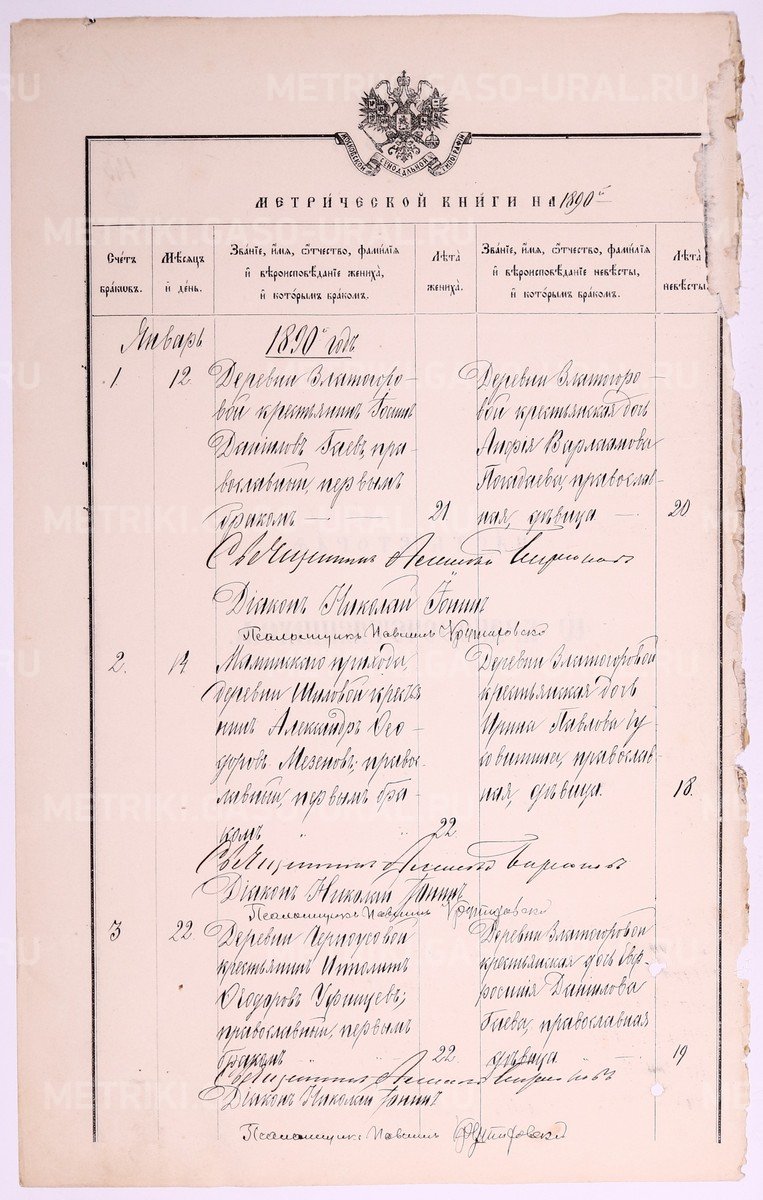 МОСКОВСКОЙ СѴНОДАЛЬНОЙ ТИПОГРАФІИ
МЕТРИ́ЧЕСКОЙ КНИ́ГИ НА 1890й
Сче́тъ бра́ковъ.
Мѣ́сяцъ и҆ де́нь.
Зва́нїе, и҆́мя, ѻ҆́тчество, фами́лїя и҆ вѣроисповѣ́данїе жениха̀, и҆ кото́рымъ бра́комъ.
Лѣ́та жениха̀.
Зва́нїе, и҆́мя, ѻ҆́тчество, фами́лїя и҆ вѣроисповѣ́данїе невѣ́сты, и҆ кото́рымъ бра́комъ.
Лѣ́та невѣ́сты
Январь 1890й годъ
1 12
Деревни Златогоро-
вой крестьянинъ
Даниловъ Гаевъ, пра-
вославный, первымъ
бракомъ — 21
Деревни Златогоро-
вой крестьянская дочь
Варлаамова
православ-
ная, дѣвица — 20
Священникъ Алексѣй
Діаконъ Николай Іонинъ
Псаломщикъ Павлинъ
2. 14
Маминскаго прихода,
деревни Шиловой кресть
нинъ Александръ Ѳео-
доровъ Мезеновъ, правос-
лавный, первымъ бра-
комъ 22
Деревни Златогоровой
крестьянская дочь
Ирина Павлова
православ-
ная, дѣвица. 18.
Священникъ Алексѣй
Діаконъ Николай Іонинъ
Псаломщикъ Павлинъ
3 22
Деревни Черноусовой
крестьянинъ Ипполитъ
Ѳеодоровъ
православный, первымъ
бракомъ 22
Деревни Златогоровой
крестьянская дочь Евф-
росинія Данилова
Гаева, православная
дѣвица 19
Священникъ Алексѣй
Діаконъ Николай Іонинъ
Псаломщикъ Павлинъ
METRIKI.GASO-URAL.RU